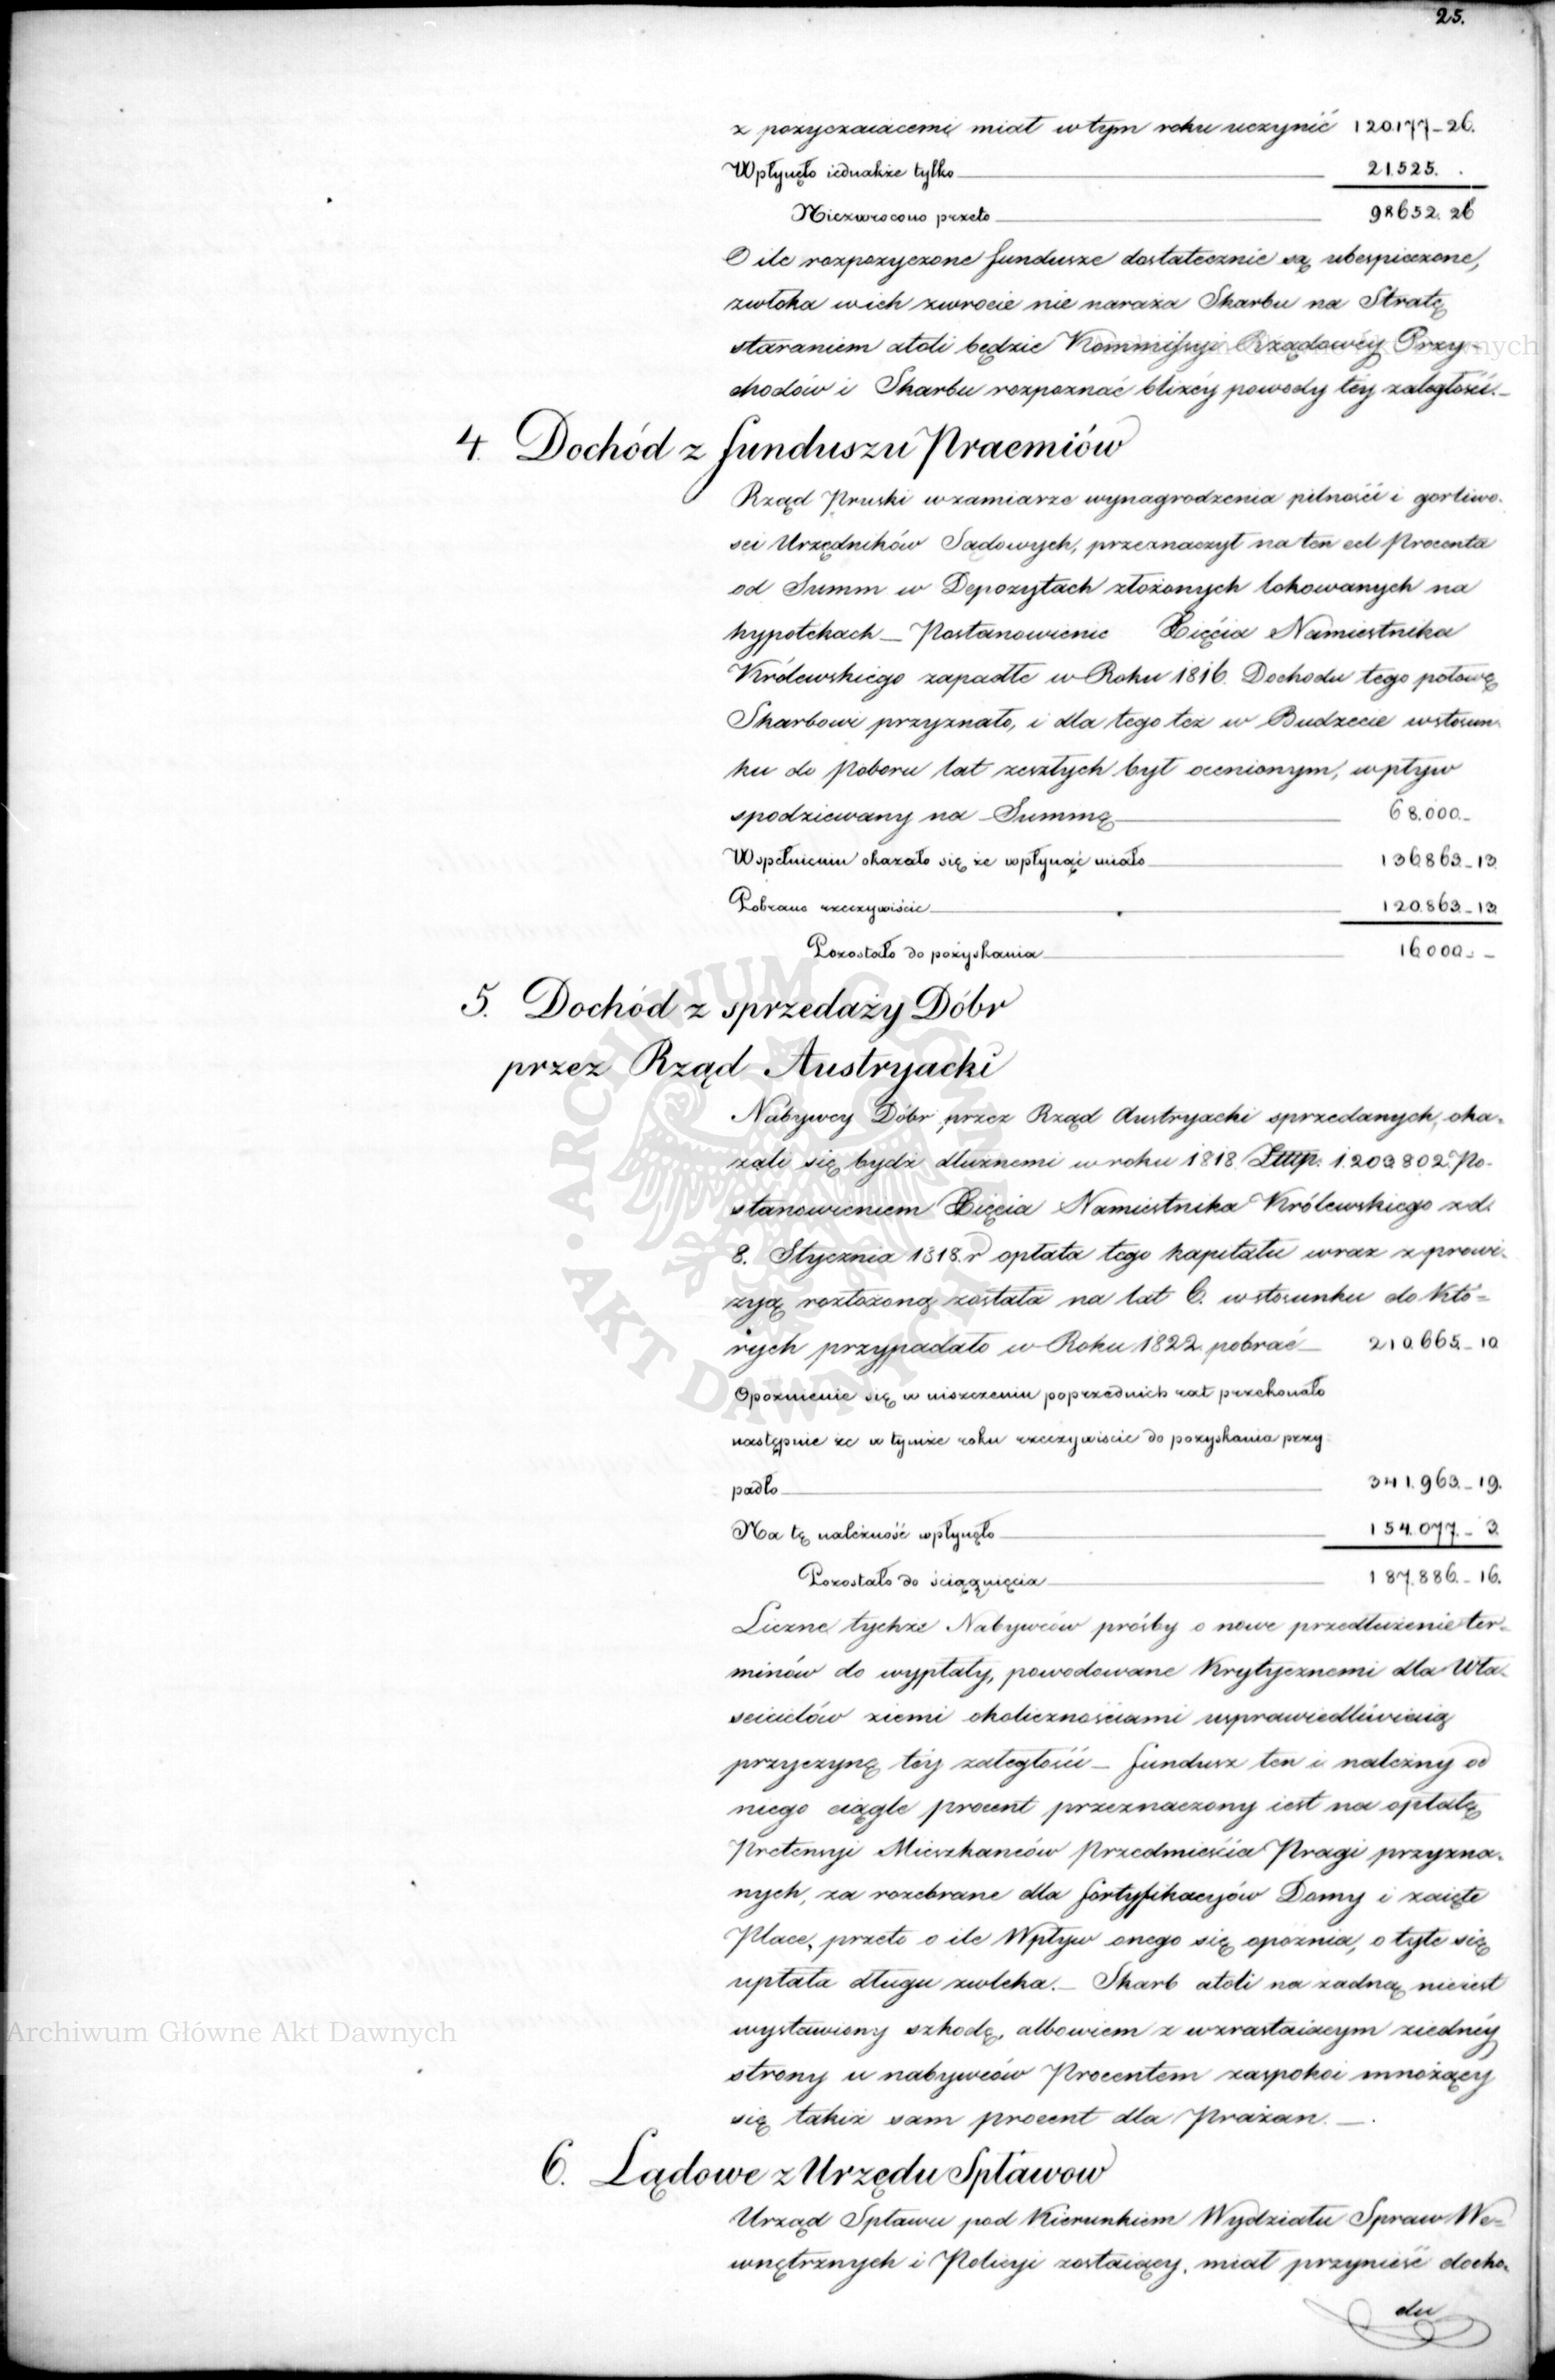 25.
z pożyczaiącemi miał w tym roku uczynić 120.177_26.
Wpłynęło iednakże tylko 21.525. .
Niezwrocono przeto 98652. 26
O ile rozpożyczone fundusze dostatecznie są ubespieczone,
zwłoka w ich zwrocie nie naraża Skarbu na Stratę
staraniem atoli będzie Kommissyi Rządowéy Przy-
chodów i Skarbu rozpoznać bliżéy powody téy zaległości._
4. Dochód z funduszu Praemiów
Rząd Pruski w zamiarze wynagrodzenia pilności i gorliwo-
sci Urzędników Sądowych, przeznaczył na ten cel Procenta
od Summ w Depozytach złożonych lokowanych na
hypotekach _ Postanowienie Xięcia Namiestnika
Królewskiego zapadłe w Roku 1816. Dochodu tego połowę
Skarbowi przyznało, i dla tego też w Budżecie w stosun-
ku do Poboru lat zeszłych był ocenionym, wpływ
spodziewany na Summę 68.000._
W spełnieniu okazało się że wpłynąć miało 136.863._13.
Pobrano rzeczywiście 120.863_13
Pozostało do pozyskania 16.000._
5. Dochód z sprzedaży Dóbr
przez Rząd Austryacki
Nabywcy Dóbr przez Rząd Austryacki sprzedanych, oka-
zali się bydź dłużnemi w roku 1818. Złłłp. 1.203.802. Po-
stanowieniem Xięcia Namiestnika Królewskiego z d.
8. Stycznia 1818. r opłata tego kapitału wraz z prowi-
zyą rozłożoną została na lat 6. w stosunku do któ-
rych przypadało w Roku 1822. pobrać _ 210.665._10
Opoznienie się w uiszczeniu poprzednich rat przekonało
następnie że w tymże roku rzeczywiscie do pozyskania przy-
padło 341.963._19.
Na tę należność wpłynęło 154.077._3.
Pozostało do ściągnięcia 187.886._16.
Liczne tychże Nabywców prośby o nowe przedłużenie ter-
minów do wypłaty, powodowane krytycznemi dla Wła-
scicielów ziemi okolicznościami usprawiedliwiaią
przyczynę téy zaległości _ fundusz ten i należny od
niego ciągle procent przeznaczony iest na opłatę
Pretensyi Mieszkanców Przedmieścia Pragi przyzna-
nych, za rozebrane dla fortyfikacyów Domy i zaięte
Place, przeto o ile Wpływ onego się opoznia, o tyle się
upłata długu zwleka._ Skarb atoli na żadną nieiest
wystawiony szkodę, albowiem z wzrastaiącym z iednéy
strony u nabywców Procentem zaspokoi mnożący
się takiż sam procent dla Prażan. _ .
6. Lądowe z Urzędu Spławow
Urząd Spławu pod Kierunkiem Wydziału Spraw We-
wnętrznych i Policyi zostaiący, miał przynieść docho-
du
Archiwum Główne Akt Dawnych
ARCHIWUM GŁÓWNE • AKT DAWNYCH •